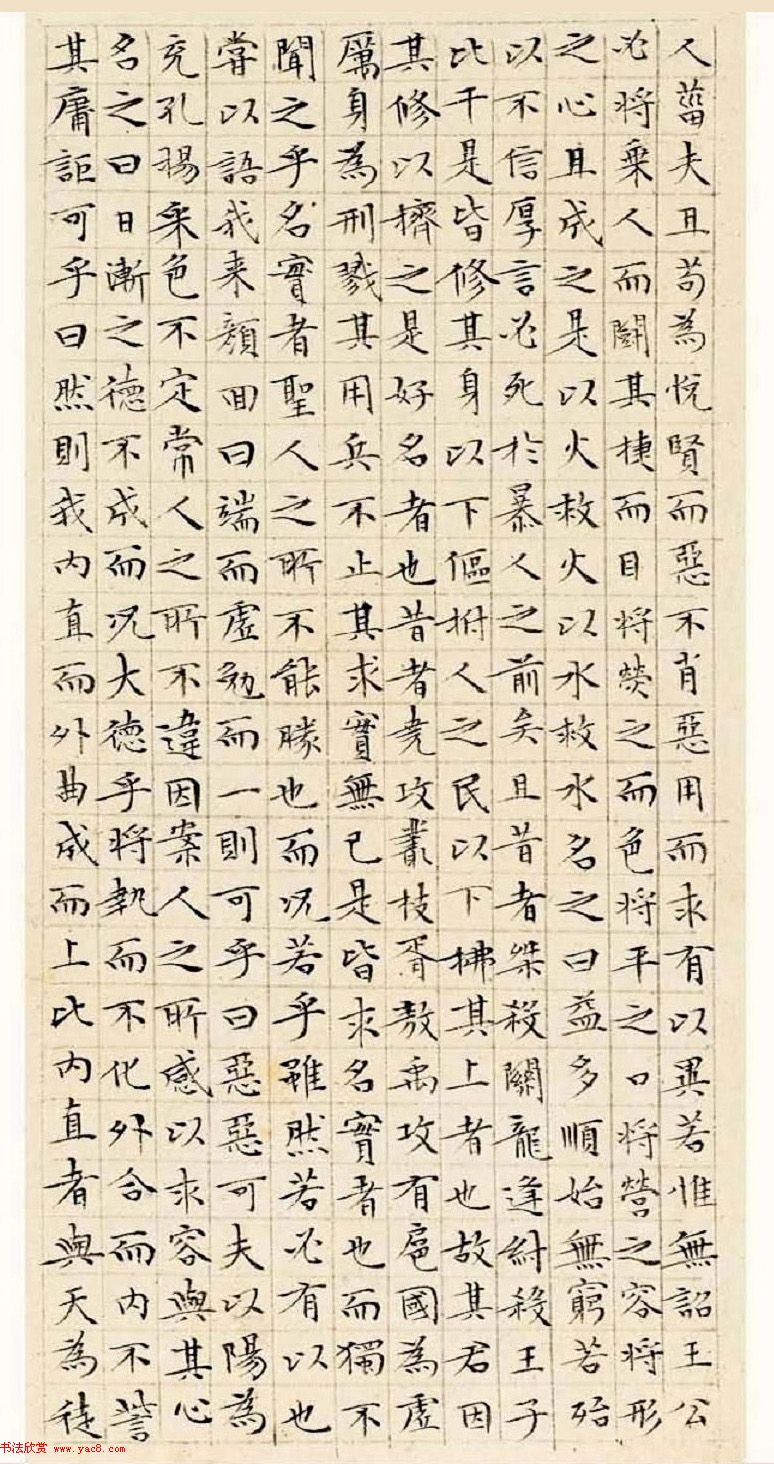 人菑夫且苟為悅賢而惡不肖惡用而求有以異若惟無詔王公
必將乘人而鬭其捷而目將熒之而色將平之口將營之容將形
之心且成之是以火救火以水救水名之曰益多順始無窮若殆
以不信厚言必死於暴人之前矣且昔者桀殺關龍逢紂殺王子
比干是皆修其身以下傴拊人之民以下拂其上者也故其君因
其修以擠之是好名者也昔者堯攻叢枝胥敖禹攻有扈國為虛
厲身為刑戮其用兵不止其求實無已是皆求名實者也而獨不
聞之乎名實者聖人之所不能勝也而況若乎雖然若必有以也
嘗以語我来顏回曰端而虛勉而一則可乎曰惡惡可夫以陽為
充孔揚采色不定常人之所不違因案人之所感以求容與其心
名之曰日漸之德不成而況大德乎將執而不化外合而內不訾
其庸詎可乎曰然則我內直而外曲成而上比內直者與天為徒
书法欣赏 www.yac8.com